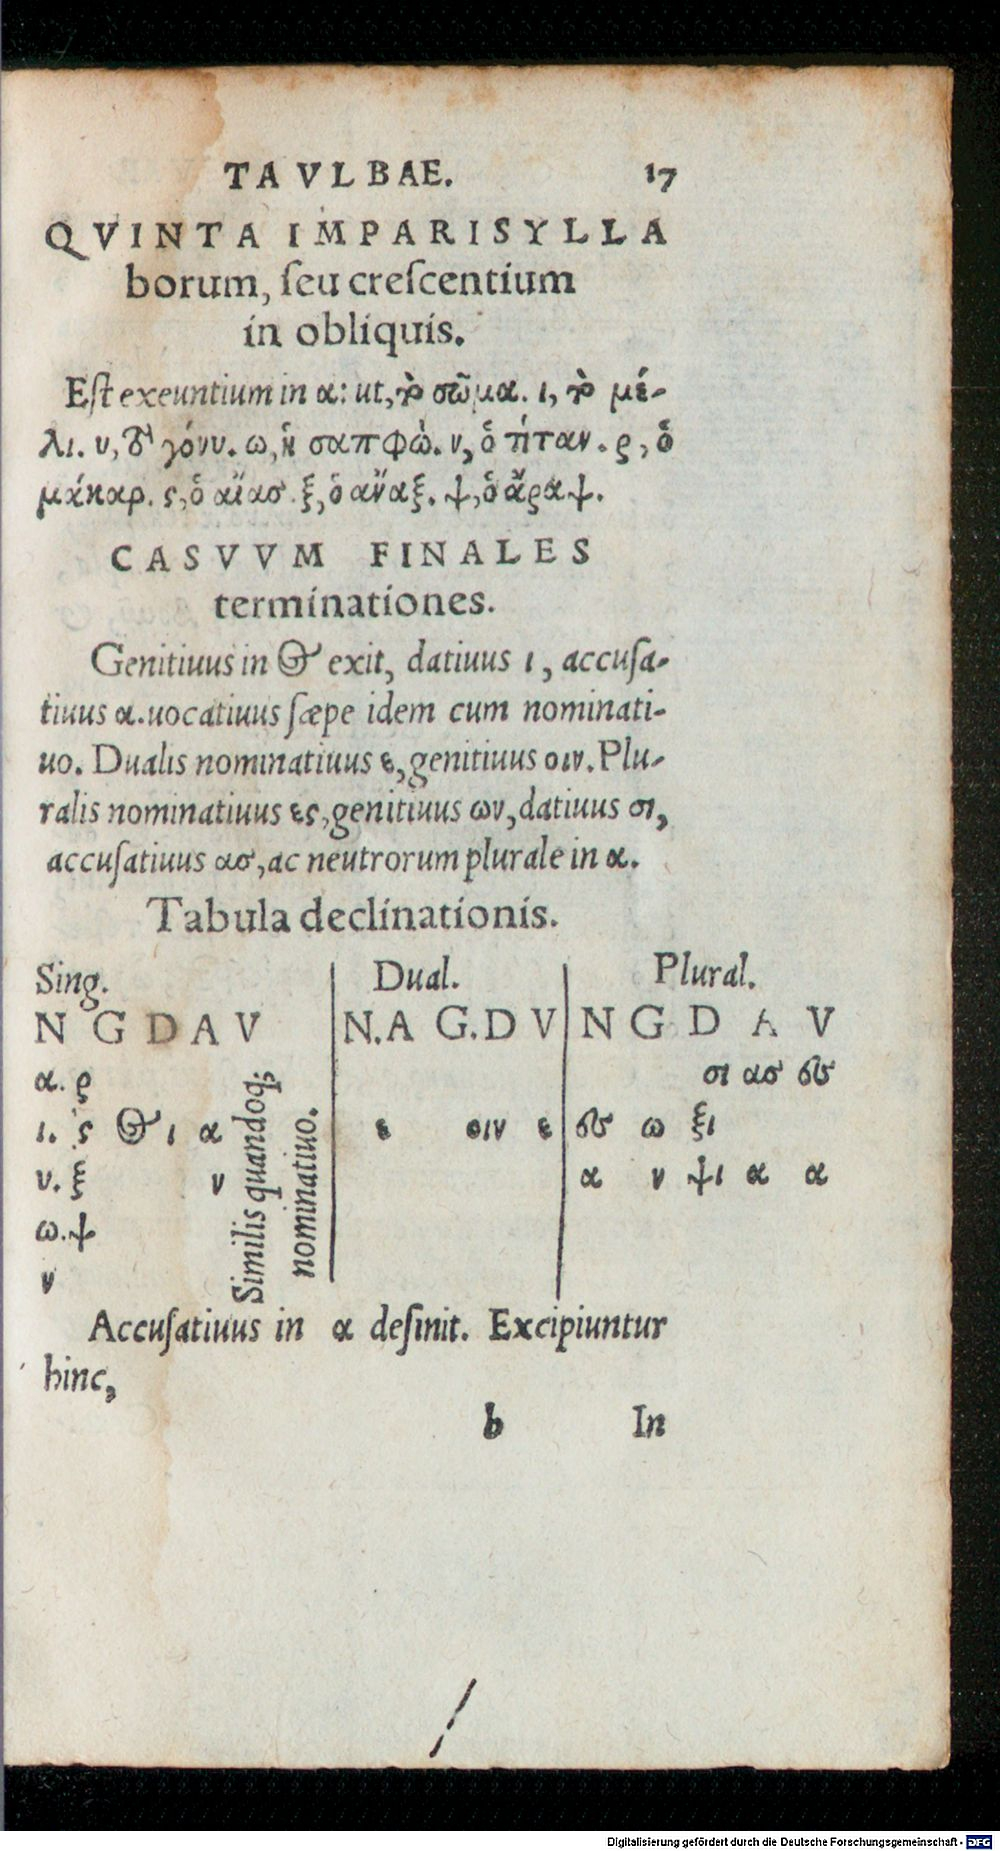 TAVLBAE. 17
QVINTA IMPARISYLLA
borum, ſeu creſcentium
in obliquis.
Eſt exeuntium in α: ut, τὸ σῶμα. ι, τὸ μέ-
λι. υ, τὸ γόνυ. ω, ἡ σαπφὼ. ν, ὁ τίταν. ρ, ὁ
μάκαρ. ς, ὁ αἴας. ξ, ὁ ἄναξ. ψ, ὁ ἄραψ.
CASVVM FINALES
terminationes.
Genitiuus in ος exit, datiuus ι, accuſa-
tiuus α. uocatiuus ſæpe idem cum nominati-
uo. Dualis nominatiuus ε, genitiuus οιν. Plu-
ralis nominatiuus ες, genitiuus ων, datiuus σι,
accuſatiuus ας, ac neutrorum plurale in α.
Tabula declinationis.
Sing. Dual. Plural.
N G D A V N.A G.D V N G D A V
α. ρ σι ας ες
ι. ς ος ι α ε οιν ε ες ω ξι
υ. ξ ν α ν ψι α α
ω. ψ
ν
Similis quandoq;
nominatiuo.
Accuſatiuus in α deſinit. Excipiuntur
hinc,
b In
Digitalisierung gefördert durch die Deutsche Forschungsgemeinschaft - DFG